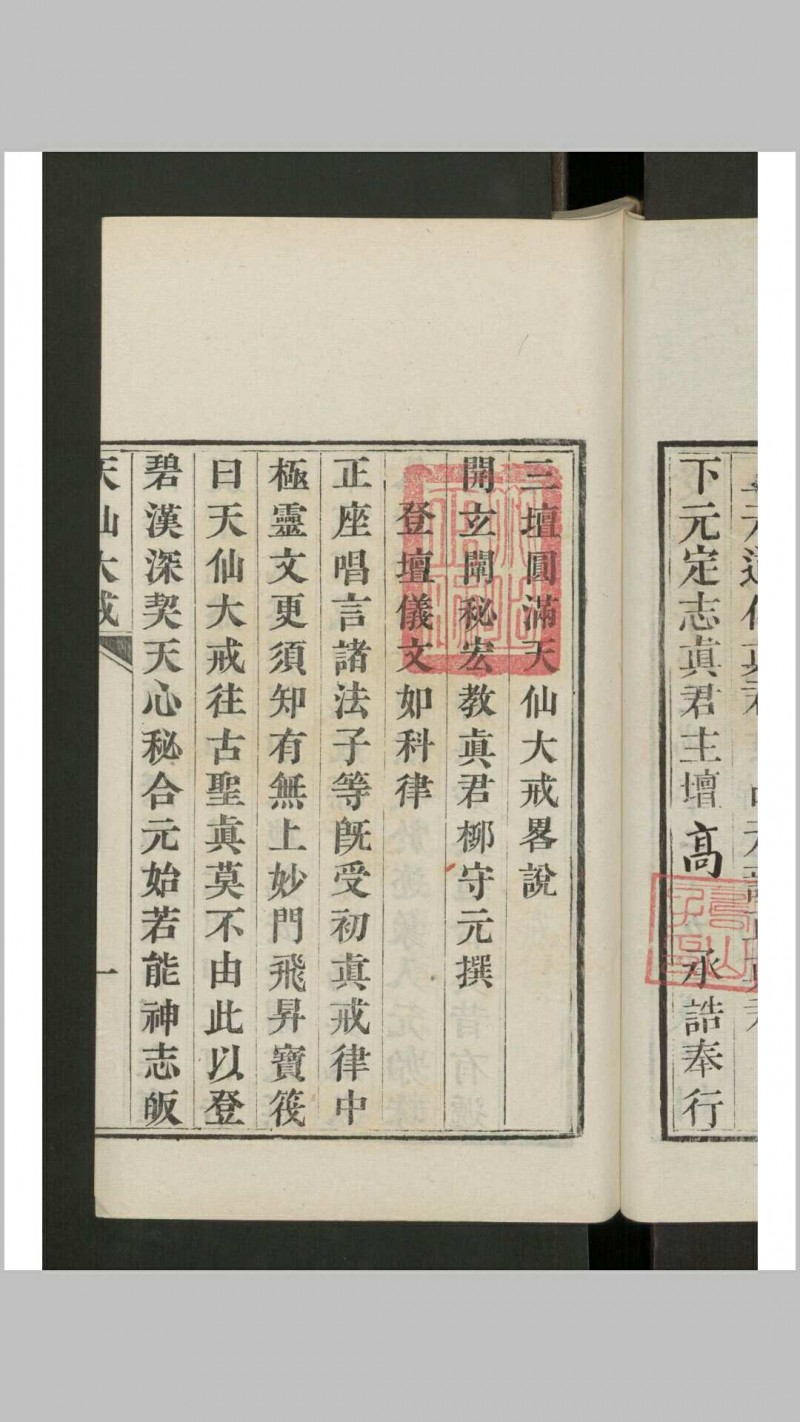 下元定志眞君主壇高承誥奉行
三壇圓滿天仙大戒畧說
開玄闡秘宏教眞君柳守元撰
登壇儀文如科律
正座唱言諸法子等旣受初眞戒律中
極靈文更須知有無上妙門飛昇寶筏
曰天仙大戒往古聖眞莫不由此以登
碧漢深契天心秘合元始若能神志皈
天仙大戒 一